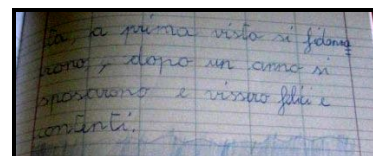 ta, a prima vista si fidanza
rono, dopo un anno si
sposarono e vissero felici e
contenti.